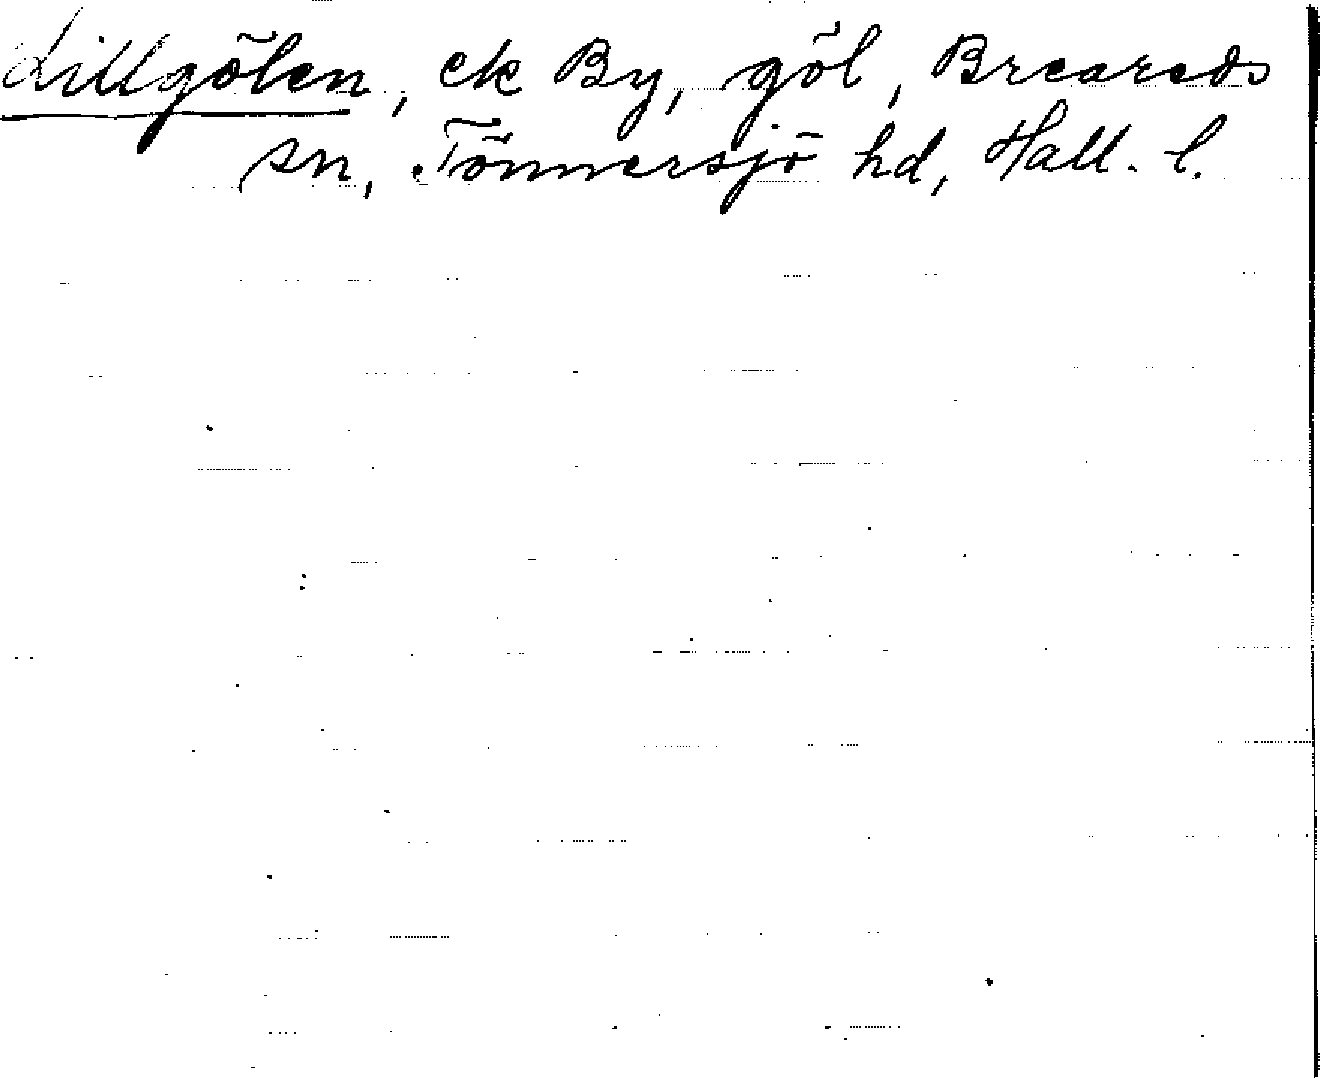 Lillgölen, ek By, göl, Breareds
sn, Tönnersjö hd, Hall. l.